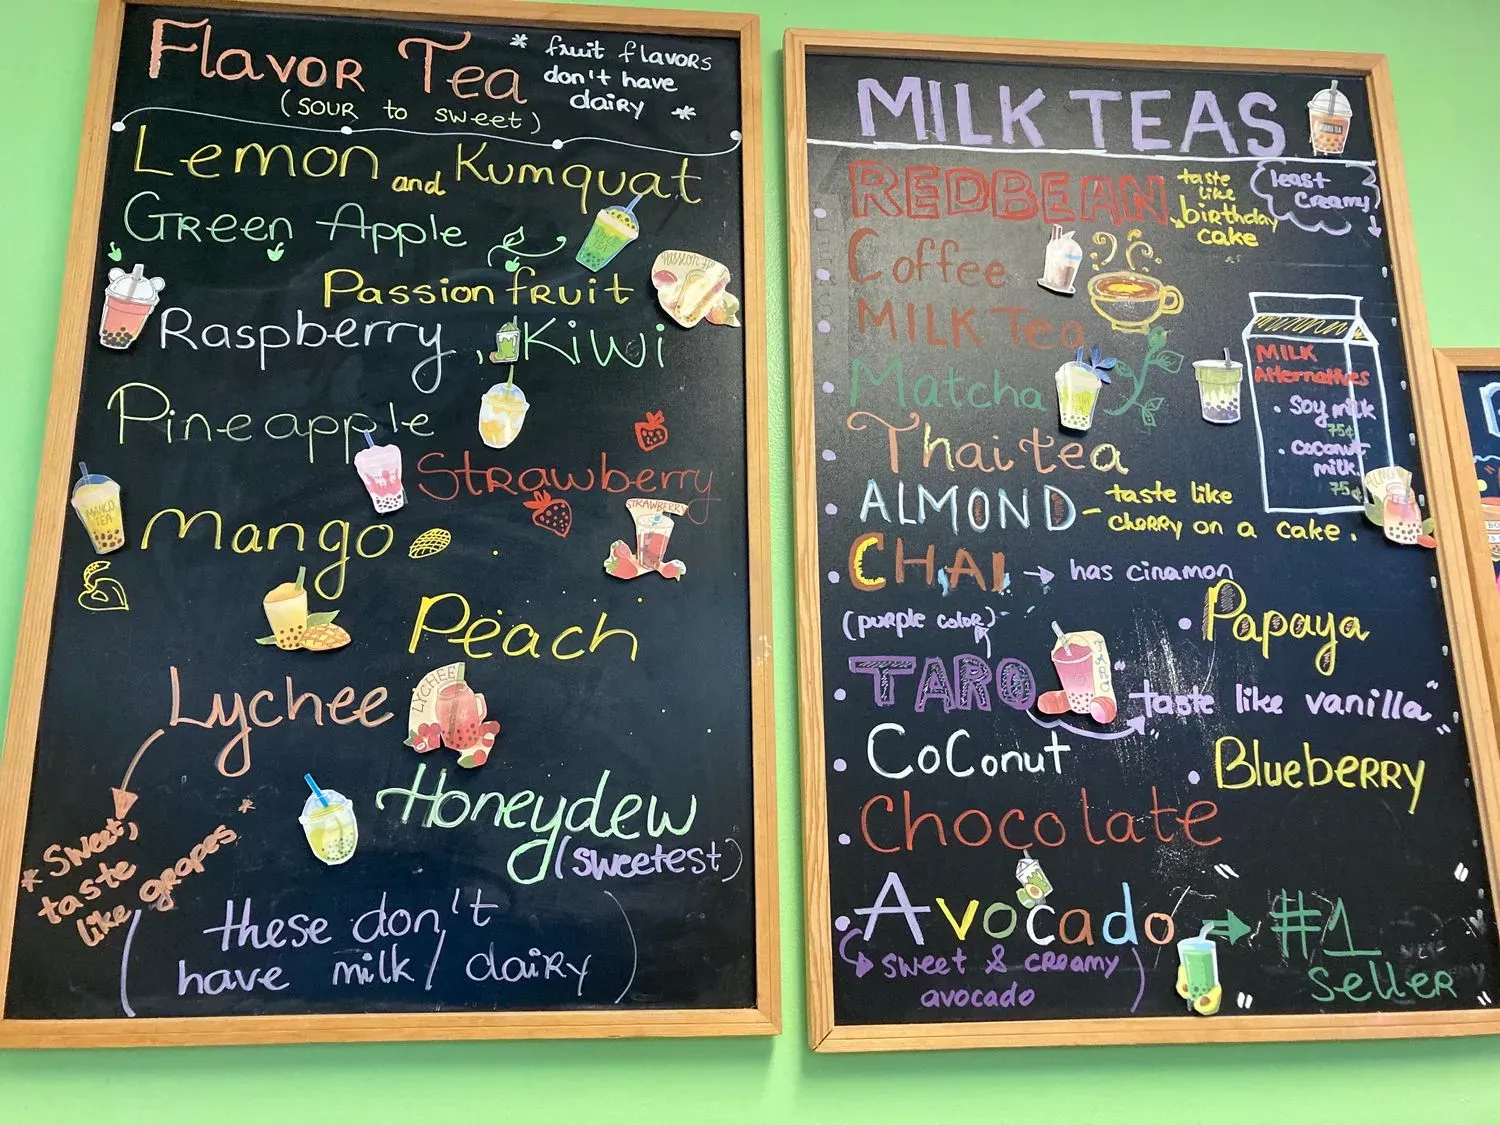 Flavor Tea
(sour to sweet)
* fruit flavors
don't have
dairy *
Lemon and Kumquat
Green Apple
Passion fruit
Raspberry, Kiwi
Pineapple
Strawberry
STRAWBERRY
MANGO
TEA
Mango
Peach
Lychee
LYCHEE
* Sweet,
taste
like grapes *
Honeydew
(sweetest)
(these don't
have milk/dairy)
MILK TEAS
REDBEAN
taste
like
birthday
cake
(least
creamy)
Coffee
MILK Tea
Matcha
MILK
Alternatives
• Soy milk
75¢
• coconut
milk.
75¢
Thai tea
ALMOND - taste like
cherry on a cake.
CHAI → has cinamon
(purple color)
• Papaya
TARO
TARO
"taste like vanilla"
Coconut
• Blueberry
Chocolate
Avocado → #1
seller
sweet & creamy
avocado)